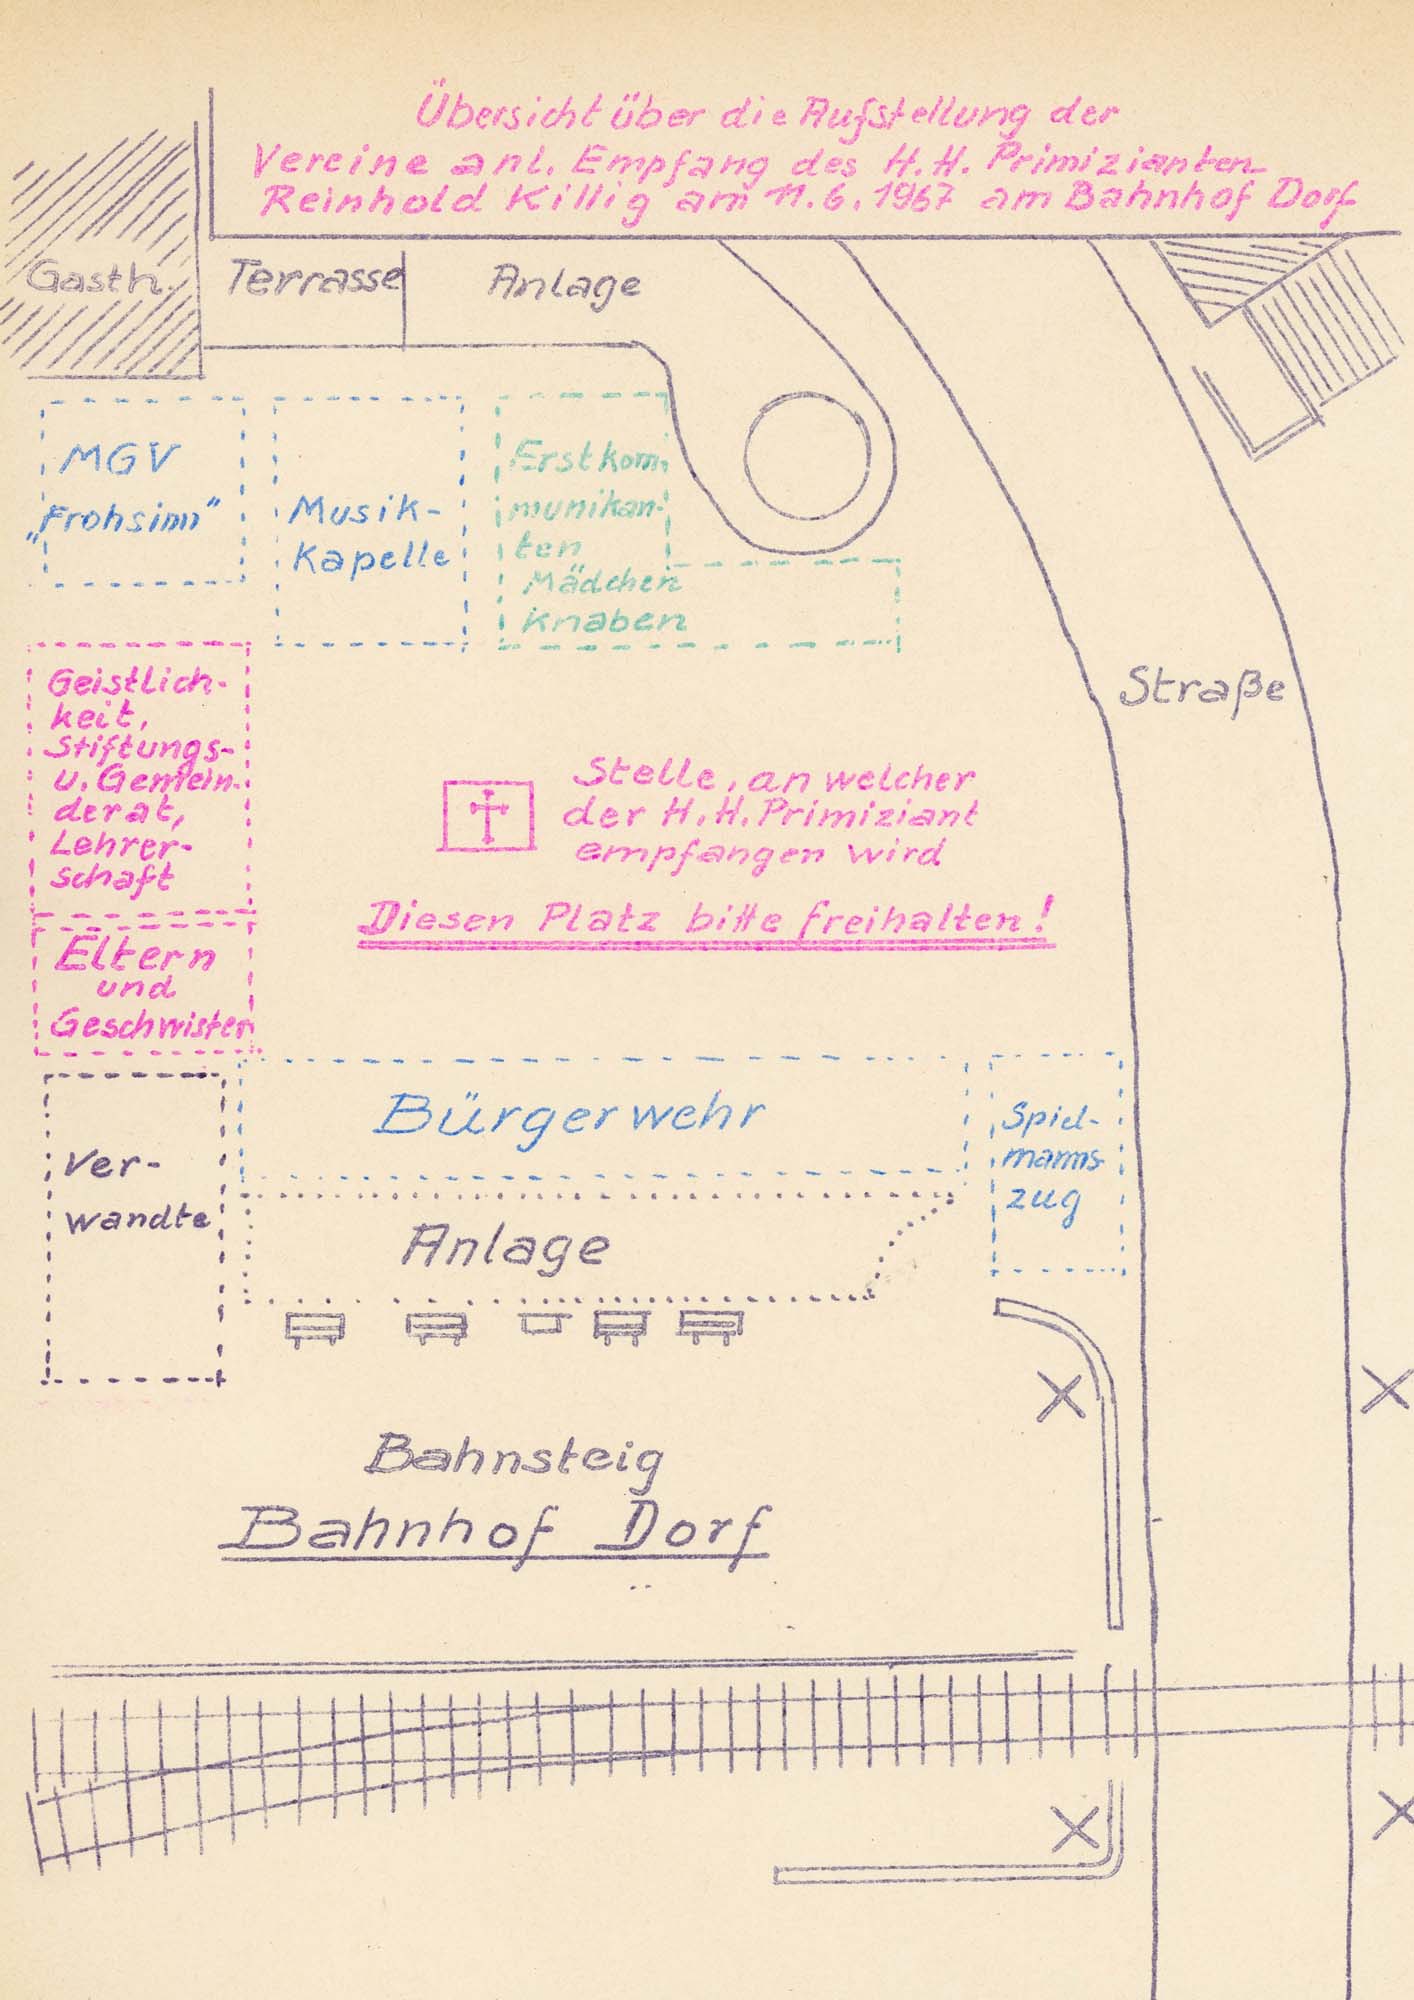 Übersicht über die Aufstellung der
Vereine anl. Empfang des H.H. Primizianten
Reinhold Killig am 11.6.1967 am Bahnhof Dorf
Gasth.
Terrasse
Anlage
MGV
„Frohsinn“
Musik-
Kapelle
Erstkom-
munikan-
ten
Mädchen
Knaben
Geistlich-
keit,
Stiftungs-
u. Gemein-
derat,
Lehrer-
schaft
Straße
Stelle, an welcher
der H.H. Primiziant
empfangen wird
Diesen Platz bitte freihalten!
Eltern
und
Geschwister
Ver-
wandte
Bürgerwehr
Spiel-
manns-
zug
Anlage
Bahnsteig
Bahnhof Dorf